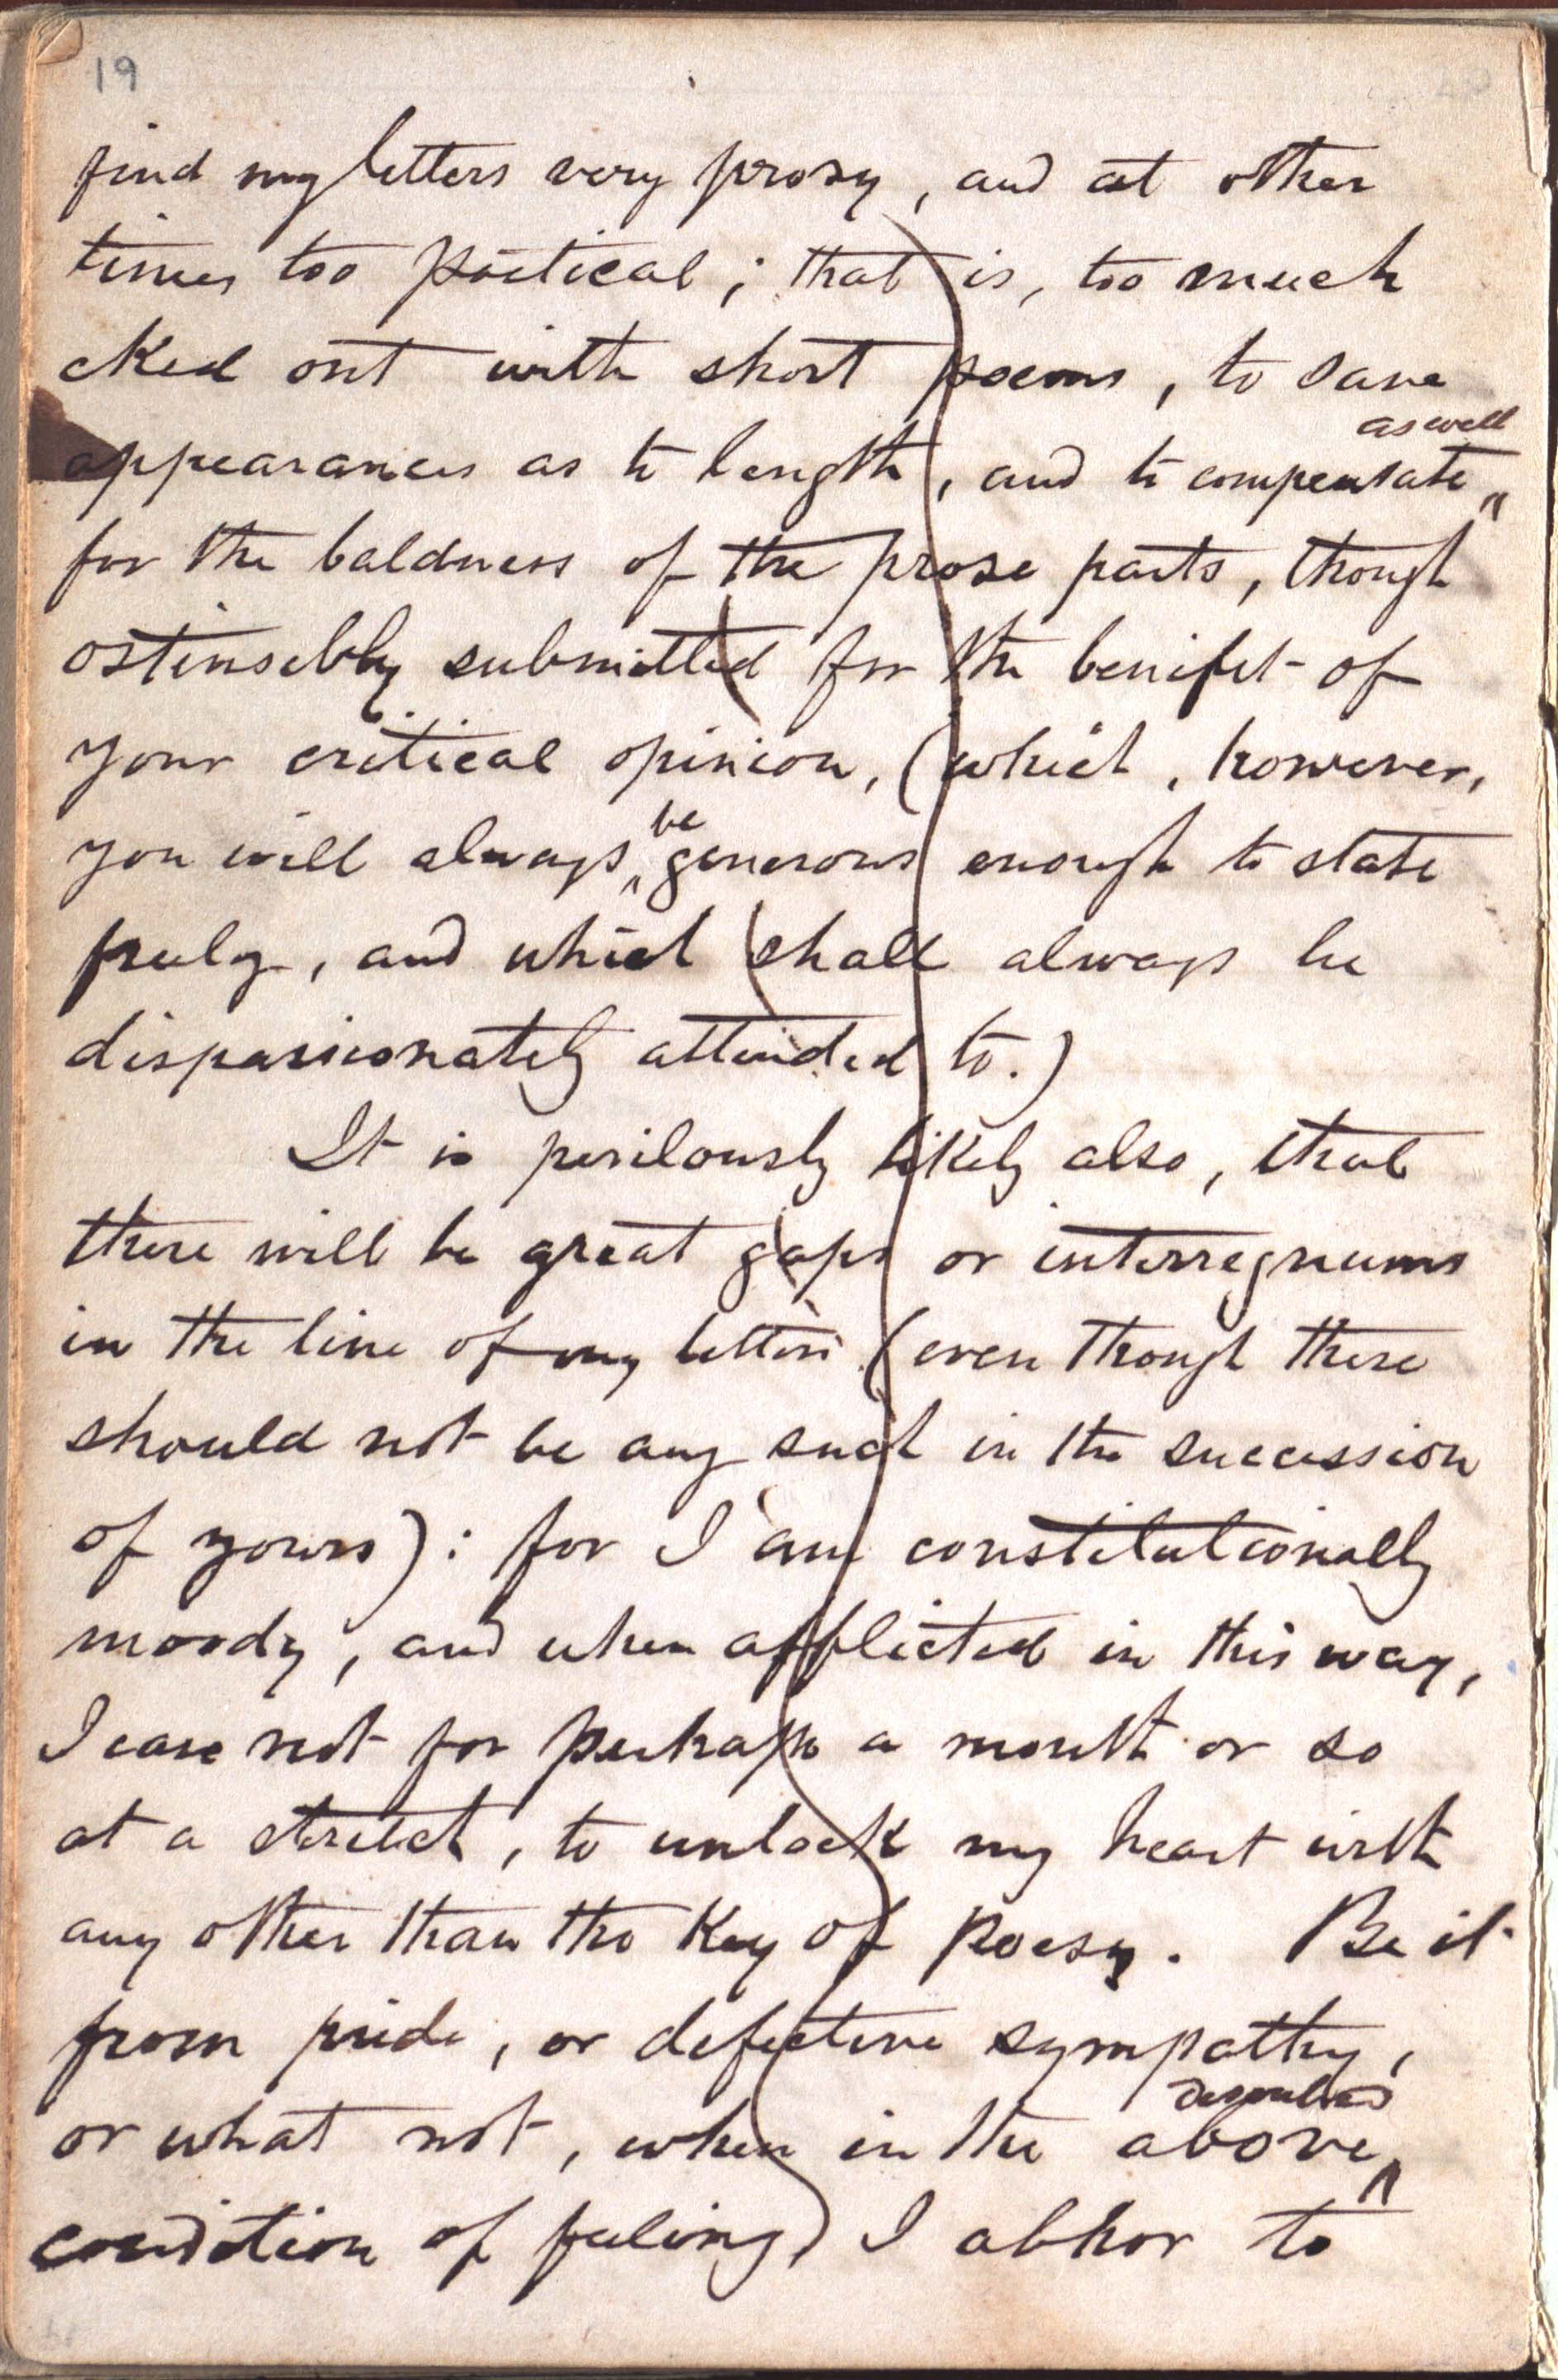 19
find my letters very prosy, and at other
times too poetical; that is, too much
eked out with short poems, to save
appearances as to length, and to compensate as well
for the baldness of the prose parts, though
ostensibly submitted for the benifit of
your critical opinion, (which, however,
you will always be generous enough to state
freely, and which shall always be
dispassionately attended to.)
It is perilously likely also, that
there will be great gaps or interregnums
in the line of my letters (even though there
should not be any such in the succession
of yours): for I am constitutionally
moody, and when afflicted in this way,
I care not for perhaps a month or so
at a stretch, to unlock my heart with
any other than the key of Poesy. Be it
from pride, or defective sympathy,
or what not, when in the above described
condition of feeling, I abhor to